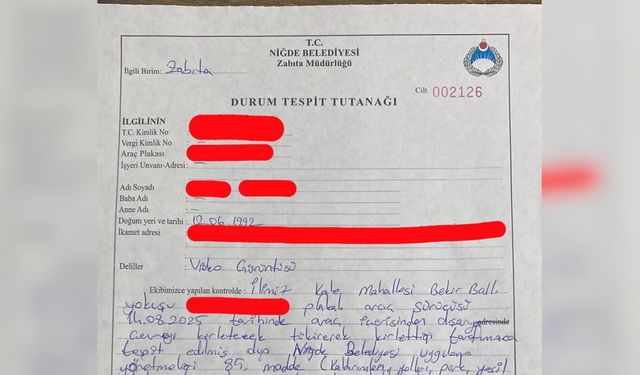 T.C.
NİĞDE BELEDİYESİ
Zabıta Müdürlüğü
İlgili Birim: Zabıta
Cilt 002126
DURUM TESPİT TUTANAĞI
İLGİLİNİN
T.C. Kimlik No :
Vergi Kimlik No :
Araç Plakası :
İşyeri Unvanı-Adresi :
Adı Soyadı :
Baba Adı :
Anne Adı :
Doğum yeri ve tarihi : 12.06.1992
İkamet adresi :
Deliller : Video Görüntüsü
Ekibimizce yapılan kontrolde : İlimiz Kale Mahallesi Bekir Ballı
yokuşu plakalı araç sürücüsü
14.08.2025 tarihinde araç içerisinden dışarıya adresinde
Çevreyi kirletecek tükürerek kirlettiği tarafımızca
tespit edilmiş olup Niğde Belediyesi uygulama
yönetmeliği 85. madde (kaldırımları, yolları, park, yeşil